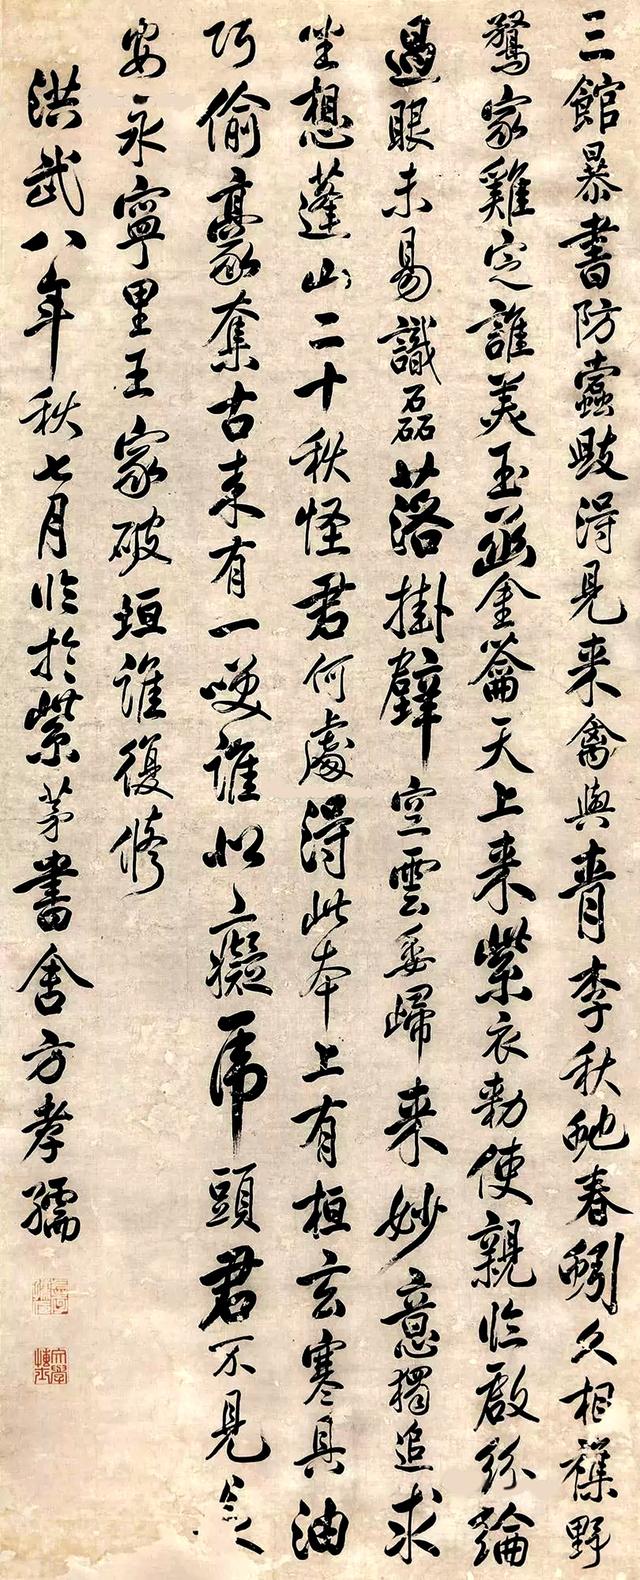 三館暴書防蠹毀得見来禽與青李秋蛇春蚓久相襍野
鶩家雞定誰美玉函金籥天上来紫衣勅使親臨啟紛綸
過眼未易識磊落掛壁空雲委歸来妙意獨追求
坐想蓬山二十秋怪君何處得此本上有桓玄寒具油
巧偷豪奪古来有一笑誰似癡虎頭君不見長
安永寧里王家破垣誰復修
洪武八年秋七月臨於紫茅書舍方孝孺